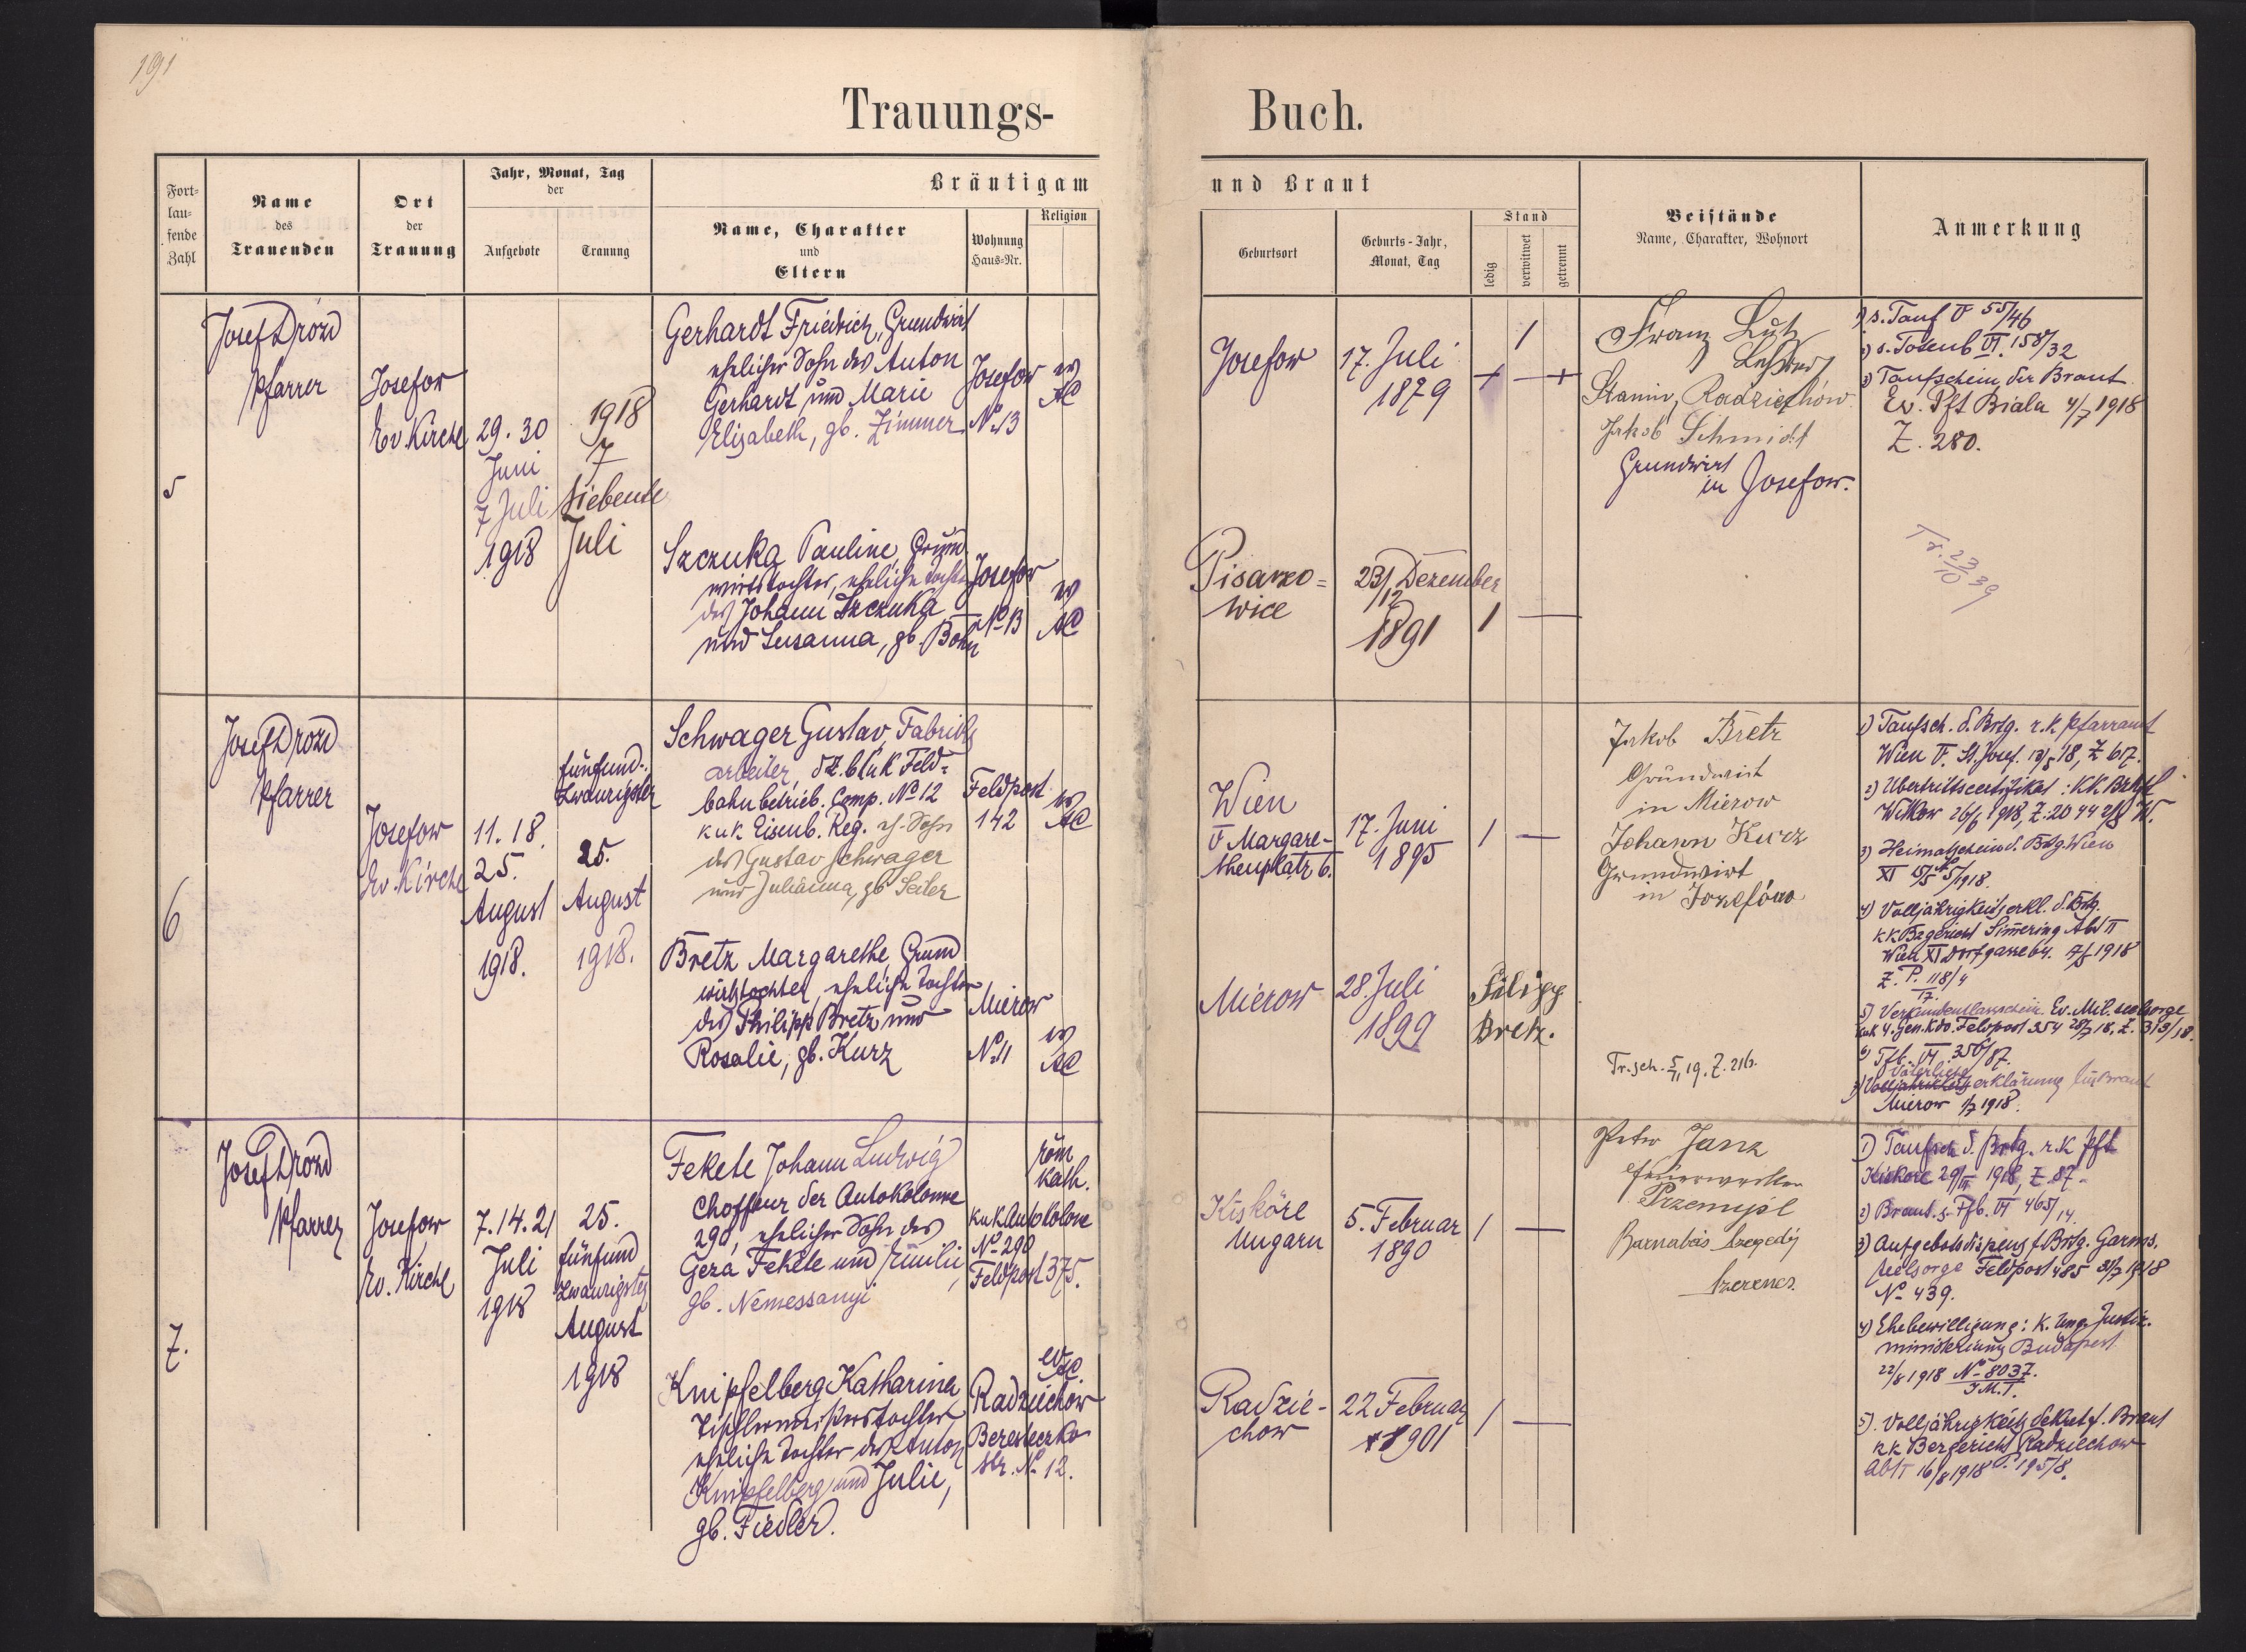 191
Trauungs- Buch.
Fort-
lau-
fende
Zahl
Name
des
Trauenden
Ort
der
Trauung
Jahr, Monat, Tag
der
Aufgebote
Trauung
Bräutigam
Name, Charakter
und
Eltern
Wohnung
Haus-Nr.
Religion
und Braut
Geburtsort
Geburts-Jahr,
Monat, Tag
Stand
ledig
verwitwet
getrennt
Beistände
Name, Charakter, Wohnort
Anmerkung
5
Josef Drozd
Pfarrer
Josefow
Ev. Kirche
29. 30
Juni
7 Juli
1918
1918
7
siebente
Juli
Gerhardt Friedrich, Grundwirt
ehelicher Sohn des Anton
Gerhardt und Marie
Elisabeth, gb. Zimmer
Josefow
No 13
ev
AC
Josefow
17. Juli
1879
Franz Lutz
Stanin, Radziechów
Jakob Schmidt
Grundwirt
in Josefow.
1) s. Tauf V 55/46
2) s. Totenb VI. 158/32
3) Taufschein der Braut
Ev. Pft Biala 4/7 1918
Z. 280.
Szczuka Pauline, Grund-
wirtstochter, eheliche Tochter
des Johann Szczuka
und Susanna, gb. Bohn
Josefow
No 13
ev
AC
Pisarzo=
wice
23/12 Dezember
1891
Tr. 23/10 39
6
Josef Drozd
Pfarrer
Josefow
Ev. Kirche
11. 18.
25.
August
1918.
fünfund-
zwanzigster
25.
August
1918.
Schwager Gustav, Fabriks
arbeiter, dz. k u k Feld=
bahnbetrieb. Comp. No 12
k u k Eisenb. Reg. eh. Sohn
des Gustav Schwager
und Julianna, gb Seiler
Feldpost
142
ev
AC
Wien
V Margare-
thenplatz 6.
17. Juni
1895
Jakob Bretz
Grundwirt
in Mierow
Johann Kurz
Grundwirt
in Józefów
1) Taufsch. d. Brtg. r. k Pfarramt
Wien V. St. Josef. 13/5 18, Z 617.
2) Übertrittscertifikat: KK Bzhpt
Witkow 26/6 1918, Z. 20442/8 W.
3) Heimatschein d. Brtg. Wien
XI 15/5 1918.
4) Volljährigkeitserkl. d. Brtg.
KK Bzgericht Simmering Abt II
Wien XI Dorfgasse 64. 7/8 1918
Z. P. 118/4
17.
5) Verkündentlassschein Ev. Mil. seelsorge
kuk 4. Gen. Kdo. Feldpost 354 28/7 18, Z. 313/18.
6) Tfb. VI. 356/87.
7) Väterliche
Volljährikeits erklärung für Braut
Mierow 1/7 1918.
Bretz Margarethe, Grund
wirtstochter, eheliche Tochter
des Philipp Bretz und
Rosalie, gb. Kurz
Mierow
No 11
ev
AC
Mierow
28. Juli
1899
Filipp
Bretz.
Tr. sch. 5/11 19. Z. 216.
7.
Josef Drozd
Pfarrer
Josefow
Ev. Kirche
7. 14. 21
Juli
1918
25.
fünfund
zwanzigster
August
1918
Fekete Johann Ludwig
Choffeur der Autokolonne
290, ehelicher Sohn des
Geza Fekete und Emilie,
gb. Nemessanyi
k u k Autokolone
No 290
Feldpost 375.
röm
kath.
Kisköre
Ungarn
5. Februar
1890
Peter Janz
Feuerwerker
Przemysl
Barnabás Szegedy
Szerencs.
1) Taufsch d. Brtg. r. k Pft
Kisköre 29/IV 1918, Z. 87.
2) Braut. s. Tfb. VI 465/14.
3) Aufgebotsdispens f. Brtg. Garns.
seelsorge Feldpost 485 31/7 1918
No 439.
4) Ehebewilligung: K. Ung. Justiz.
ministerium Budapest
22/8 1918 No 8037.
I. M. I.
5). Volljährigkeits dekret f. Braut
KK Bezgericht Radziechow
Abt I 16/8 1918 P. 195/8.
Knipfelberg Katharina
Tischlermeisterstochter,
eheliche Tochter des Anton
Knipfelberg und Julie,
gb. Fiedler.
Radziechow
Beresteczko
str. No 12.
ev
AC.
Radzie-
chow
22 Februar
1901